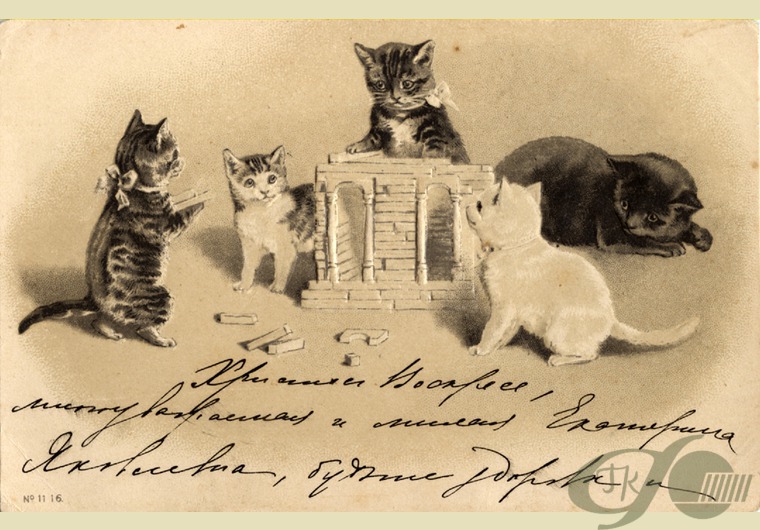 Христосъ Воскресе,
многоуважаемая и милая Екатерина
Яковлевна, будьте здоровы и
№ 11 16.
ГК